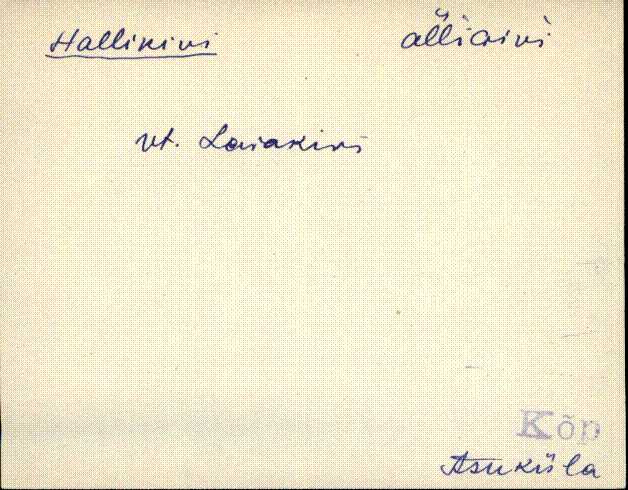 Hallikivi älliкivi
vt. Laiakivi
Kõp
Asuküla